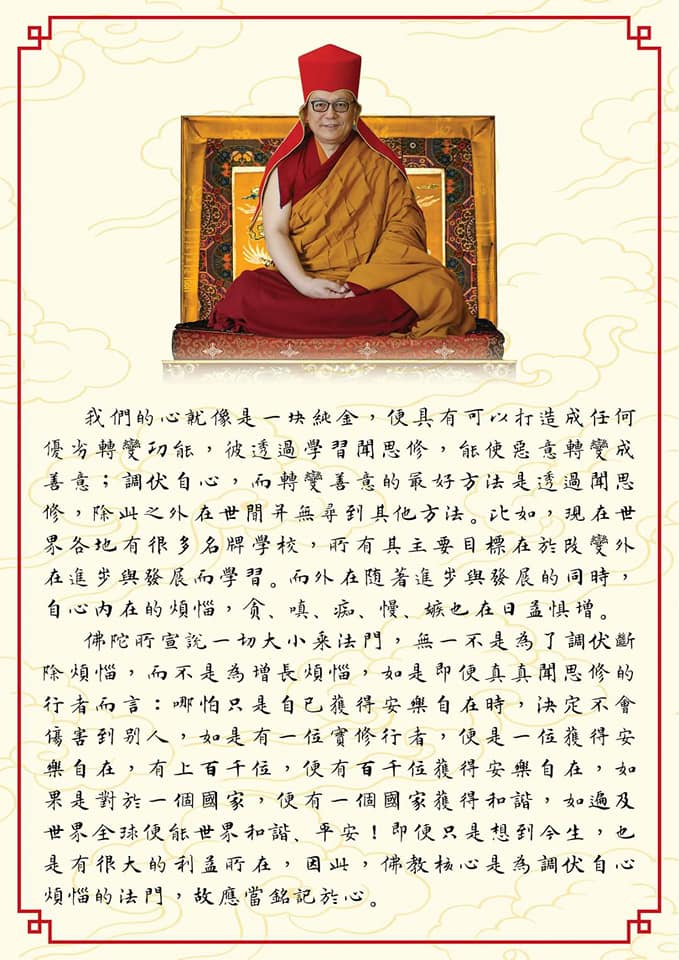 我們的心就像是一块純金，便具有可以打造成任何
優劣轉變功能，彼透過學習聞思修，能使惡意轉變成
善意；調伏自心，而轉變善意的最好方法是透過聞思
修，除此之外在世間并無尋到其他方法。比如，現在世
界各地有很多名牌學校，所有其主要目標在於改變外
在進步與發展而學習。而外在随著進步與發展的同時，
自心內在的煩惱，貪、嗔、痴、慢、嫉也在日益惧增。
佛陀所宣說一切大小乘法門，無一不是為了調伏斷
除煩惱，而不是為增長煩惱，如是即便真真聞思修的
行者而言：哪怕只是自己獲得安樂自在時，決定不會
傷害到別人，如是有一位實修行者，便是一位獲得安
樂自在，有上百千位，便有百千位獲得安樂自在，如
果是對於一個國家，便有一個國家獲得和諧，如遍及
世界全球便能世界和諧、平安！即便只是想到今生，也
是有很大的利益所在，因此，佛教核心是為調伏自心
煩惱的法門，故應當銘記於心。